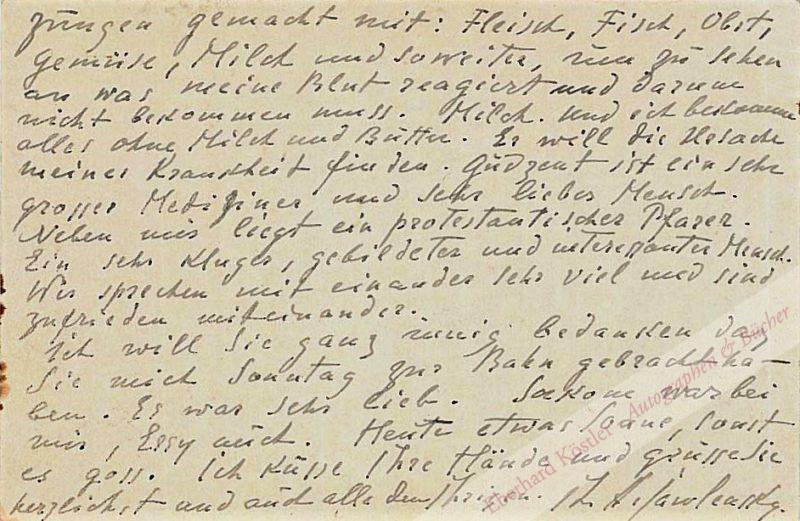 zungen gemacht mit: Fleisch, Fisch, Obst,
Gemüse, Milch und soweiter, um zu sehen
an was meine Blut reagiert und darum
nicht bekommen muss. Milch. Und ich bekomme
alles ohne Milch und Butter. Er will die Ursache
meiner Krankheit finden. Gudzent ist ein sehr
grosser Mediziner und sehr lieber Mensch.
Neben mir liegt ein protestantischer Pfarer.
Ein sehr kluger, gebildeter und interessanter Mensch.
Wir sprechen mit einander sehr viel und sind
zufrieden miteinander.
Ich will Sie ganz innig bedanken daß
Sie mich Sonntag zur Bahn gebracht ha–
ben. Es war sehr lieb. war bei
mir, auch. Heute etwas Sonne, sonst
es goss. Ich küsse Ihre Hände und grüsse Sie
herzlichst und auch alle den Ihrigen. Ihr A. Jawlensky.
Eberhard Köstler - Autographen & Bücher